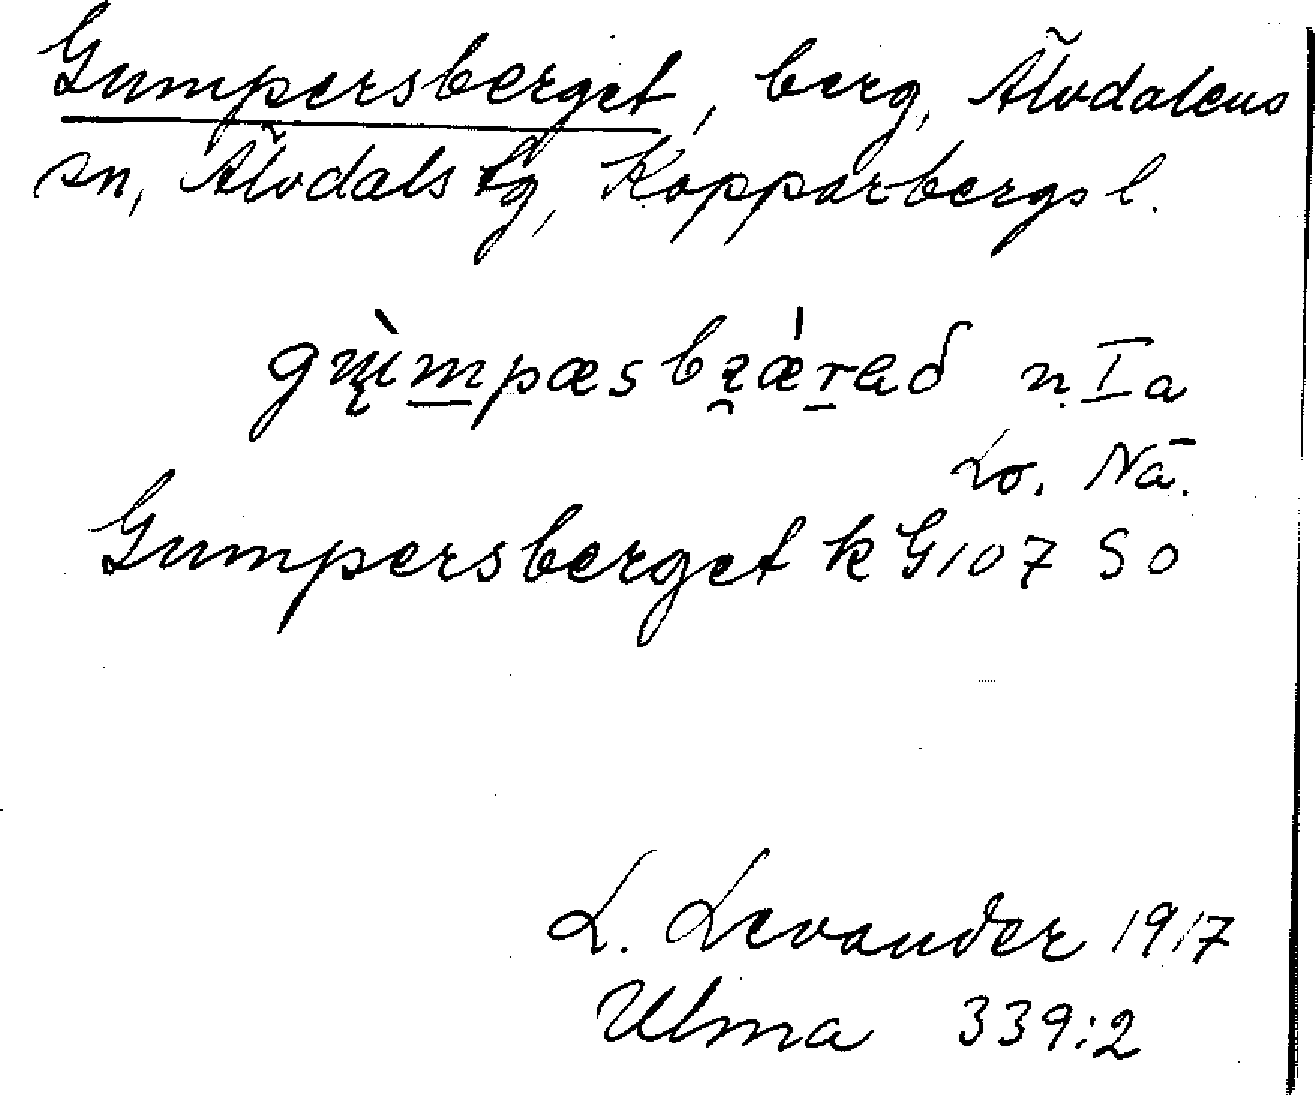 Gumpersberget, berg, Älvdalens
sn, Älvdals tg, Kopparbergs l.
n. Ia
Lo. Nä.
Gumpersberget k G107 SO
L. Levander 1917
Ulma 339:2